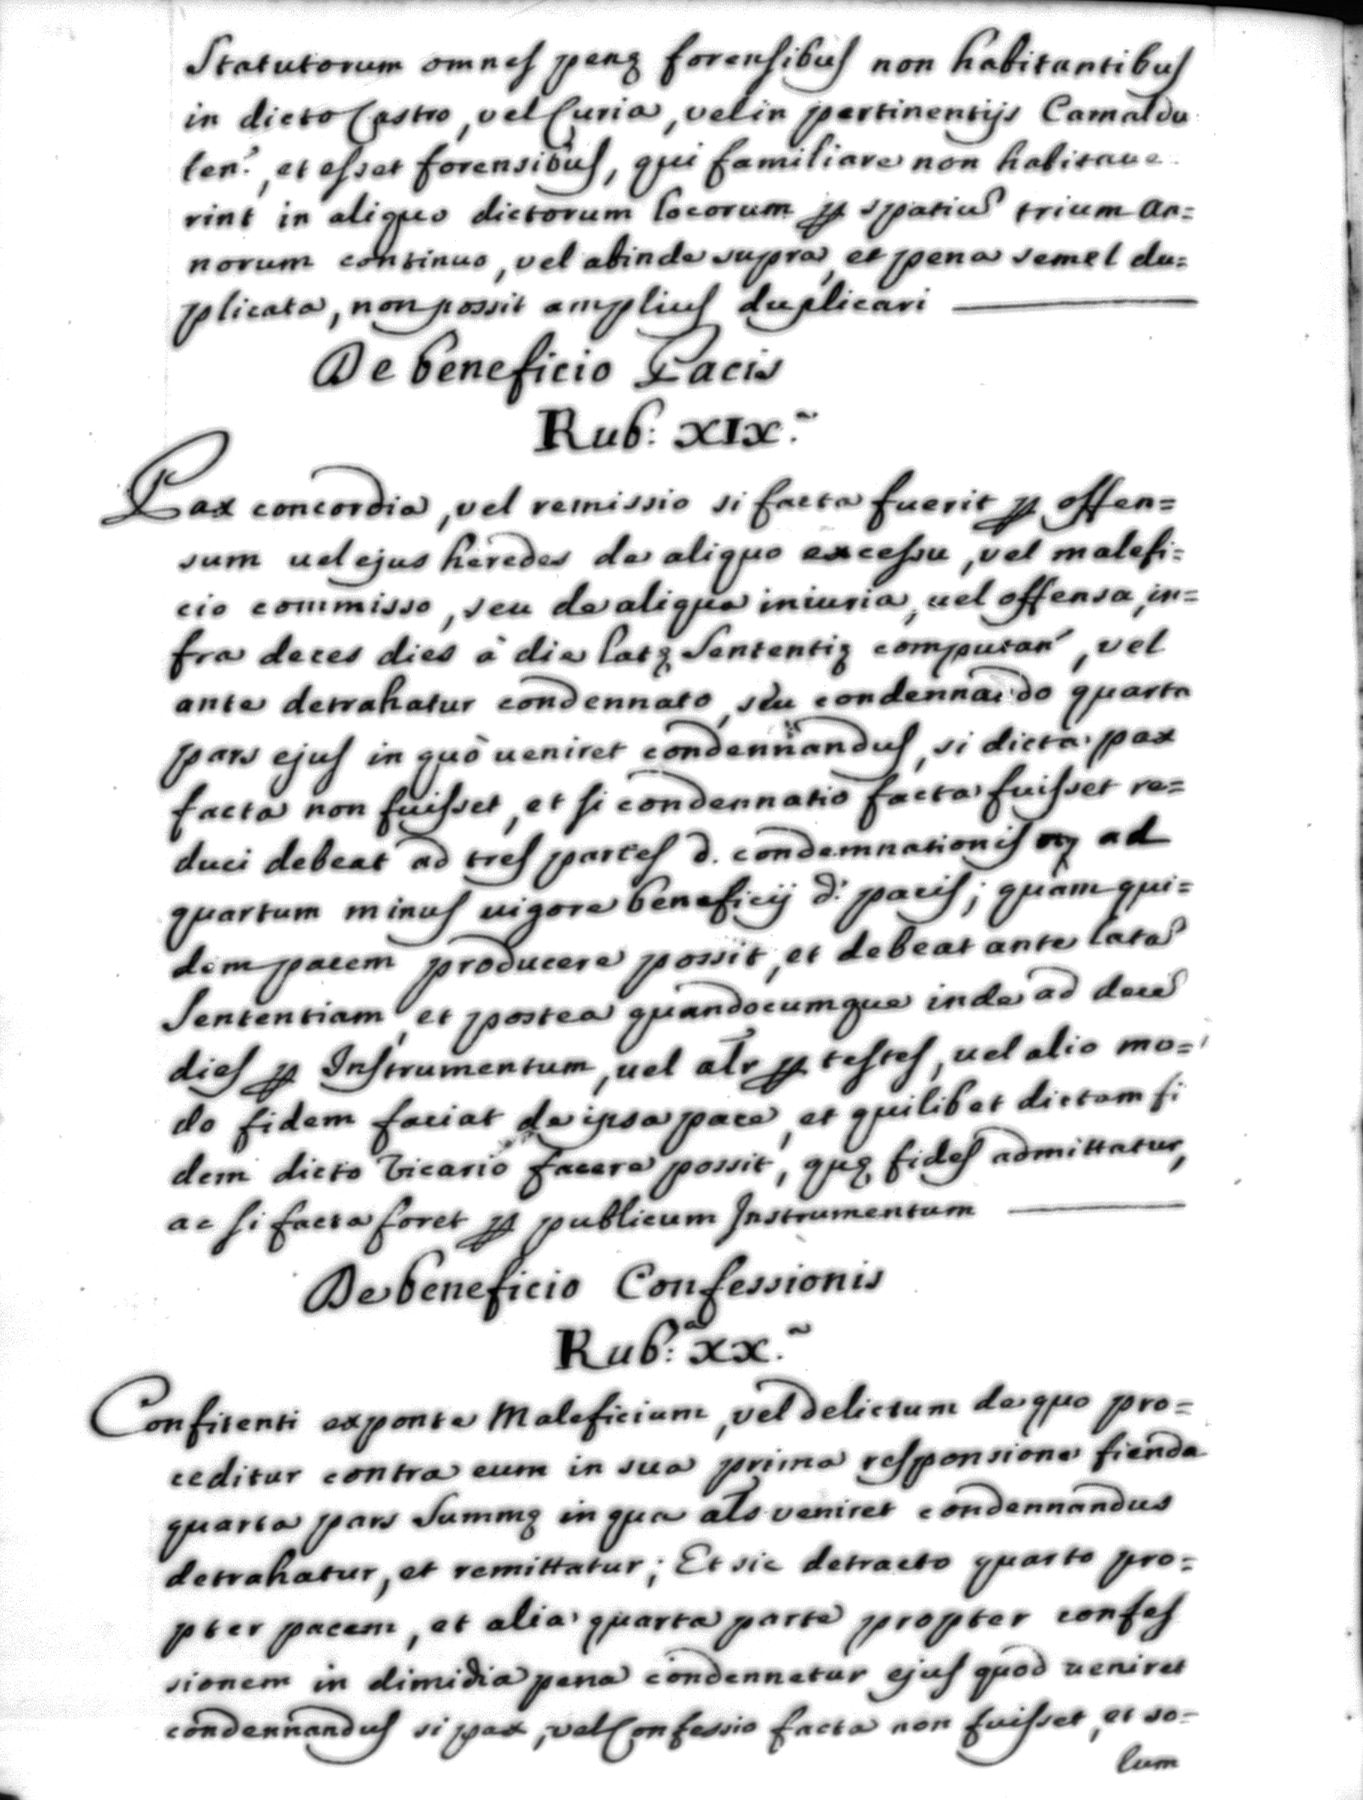 Statutorum omnes penę forensibus non habitantibus
in dicto Castro, vel Curia, vel in pertinentijs Camaldu
len:, et esset forensibus, qui familiare non habitaue
rint in aliquo dictorum locorum ꝑ spatiū trium an=
norum continuo, vel abinde supra, et pena semel du=
plicata, non possit amplius duplicari
De beneficio Pacis
Rub: XIX.a
Pax concordia, vel remissio si facta fuerit ꝑ offen=
sum uel ejus heredes de aliquo excessu, vel malefi=
cio commisso, seu de aliqua iniuria, uel offensa, in=
fra deces dies à die latę Sententię computan', vel
ante detrahatur condennato, seu condennando quarta
pars ejus in quò ueniret condennandus, si dicta pax
facta non fuisset, et si condennatio facta fuisset re=
duci debeat ad tres partes d. condemnationis ad
quartum minus uigore beneficij d: pacis; quam qui=
dem pacem producere possit, et debeat ante latā
Sententiam, et postea quandocumque inde ad decē
dies ꝑ Instrumentum, uel alr ꝑ testes, uel alio mo=
do fidem faciat de ipsa pace, et quilibet dictam fi
dem dicto Vicario facere possit, quę fides admittatur,
ac si facta foret ꝑ publicum Instrumentum
De beneficio Confessionis
Rub:a XX.a
Confitenti exponte Maleficium, vel delictum de quo pro=
ceditur contra eum in sua prima responsione fienda
quarta pars Summę in qua als veniret condennandus
detrahatur, et remittatur; Et sic detracto quarto pro=
pter pacem, et alia quarta parte propter confes
sionem in dimidia pena condennetur ejus quod ueniret
condennandus si pax, vel Confessio facta non fuisset, et so=
lum